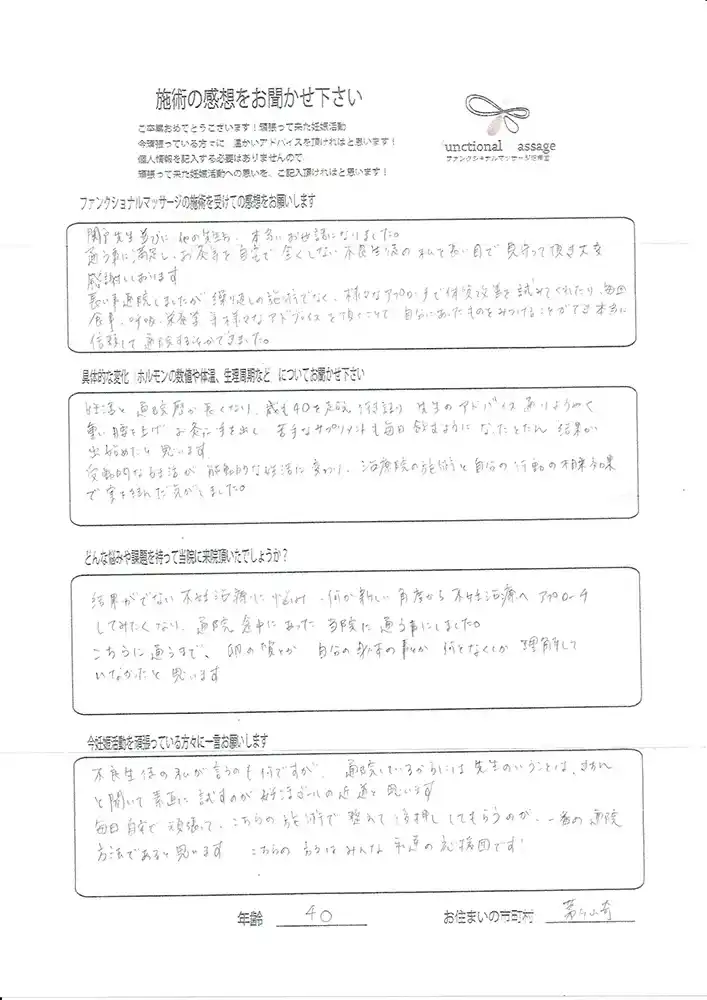 施術の感想をお聞かせ下さい
ご卒業おめでとうございます！頑張って来た妊娠活動
今頑張っている方々に　温かいアドバイスを頂ければと思います！
個人情報を記入する必要はありませんので
頑張って来た妊娠活動への思いを、ご記入頂ければと思います！
unctional assage
ファンクショナルマッサージ治療室
ファンクショナルマッサージの施術を受けての感想をお願いします
関戸先生並びに 他の先生方、本当にお世話になりました。
通う事に満足し、お灸等を自宅で全くしない不良生徒の私を長い目で見守って頂き大変
感謝しております
長い事通院しましたが繰り返しの施術でなく、様々なアプローチで体質改善を試みてくれたり、毎回
食事、呼吸、栄養学等様々なアドバイスを頂くことで 自分にあったものをみつけることができ本当に
信頼して通院する事ができました。
具体的な変化　ホルモンの数値や体温、生理周期など　についてお聞かせ下さい
妊活と通院歴が長くなり、歳も40を超え 先生のアドバイスありようやく
重い腰を上げ お灸に手を出し 苦手なサプリメントも毎日飲むようになったとたん 結果が
出始めたと思います
受動的な妊活が能動的な妊活に変わり、治療院の施術と自分の行動の相乗効果
で実を結んだ気がしました。
どんな悩みや課題を持って当院に来院頂いたでしょうか？
結果がでない不妊治療に悩み、何か新しい角度から不妊治療へアプローチ
してみたくなり、通院途中にあった当院に通う事にしました。
こちらに通うまで、卵の質とか 自分の身体の事とか 何となくしか理解して
いなかったと思います
今妊娠活動を頑張っている方々に一言お願いします
不良生徒の私が言うのも何ですが、通院しているからには先生のいうことは、きちん
と聞いて素直に試すのが妊活ゴールの近道と思います
毎日自宅で頑張って、こちらの施術で整えて後押ししてもらうのが、一番の通院
方法であると思います　こちらの方々はみんな 私達の応援団です！
年齢　40
お住まいの市町村　茅ヶ崎